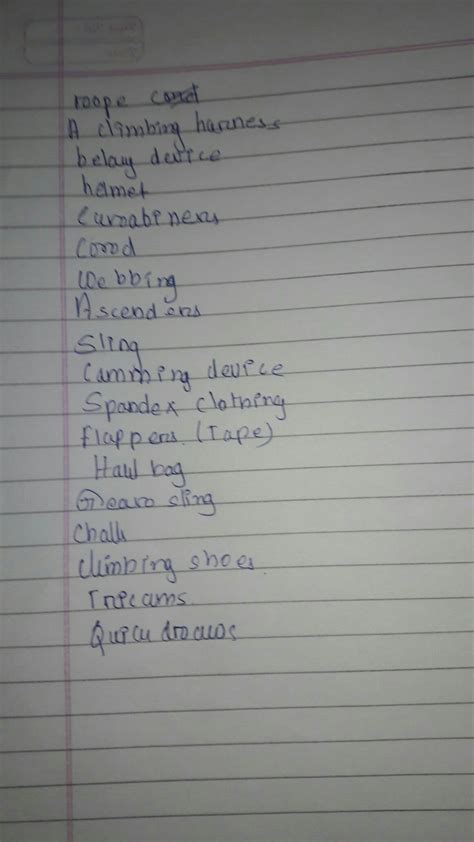 roope
A climbing harness
belay device
helmet
Curabiners
Corod
Webbing
Ascenders
Sling
Camming device
Spandex clothing
flappers (Tape)
Haul bag
Gearo sling
Chalk
climbing shoes
Tricams
Quick drawos